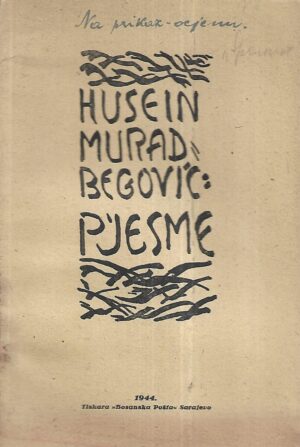 Na prikaz-ocjenu.
HUSEIN
MURAD=
BEGOVIĆ:
PJESME
1944.
Tiskara »Bosanska Pošta« Sarajevo